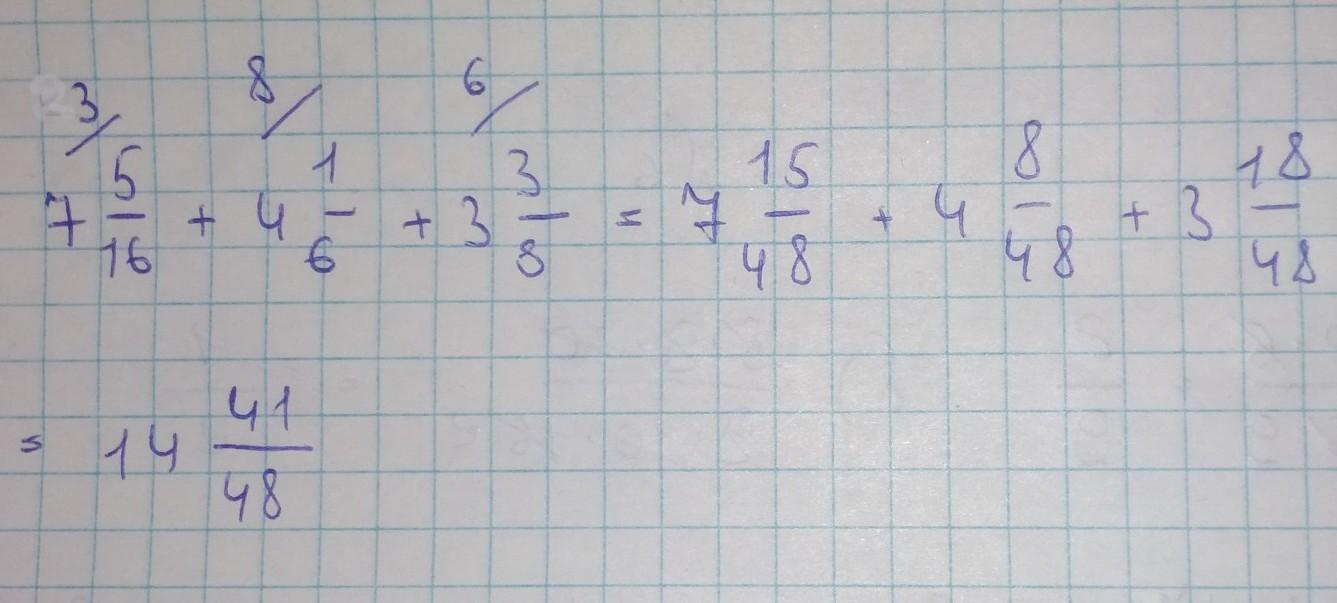 3/ 8/ 6/
7 5/16 + 4 1/6 + 3 3/8 = 7 15/48 + 4 8/48 + 3 18/48
= 14 41/48